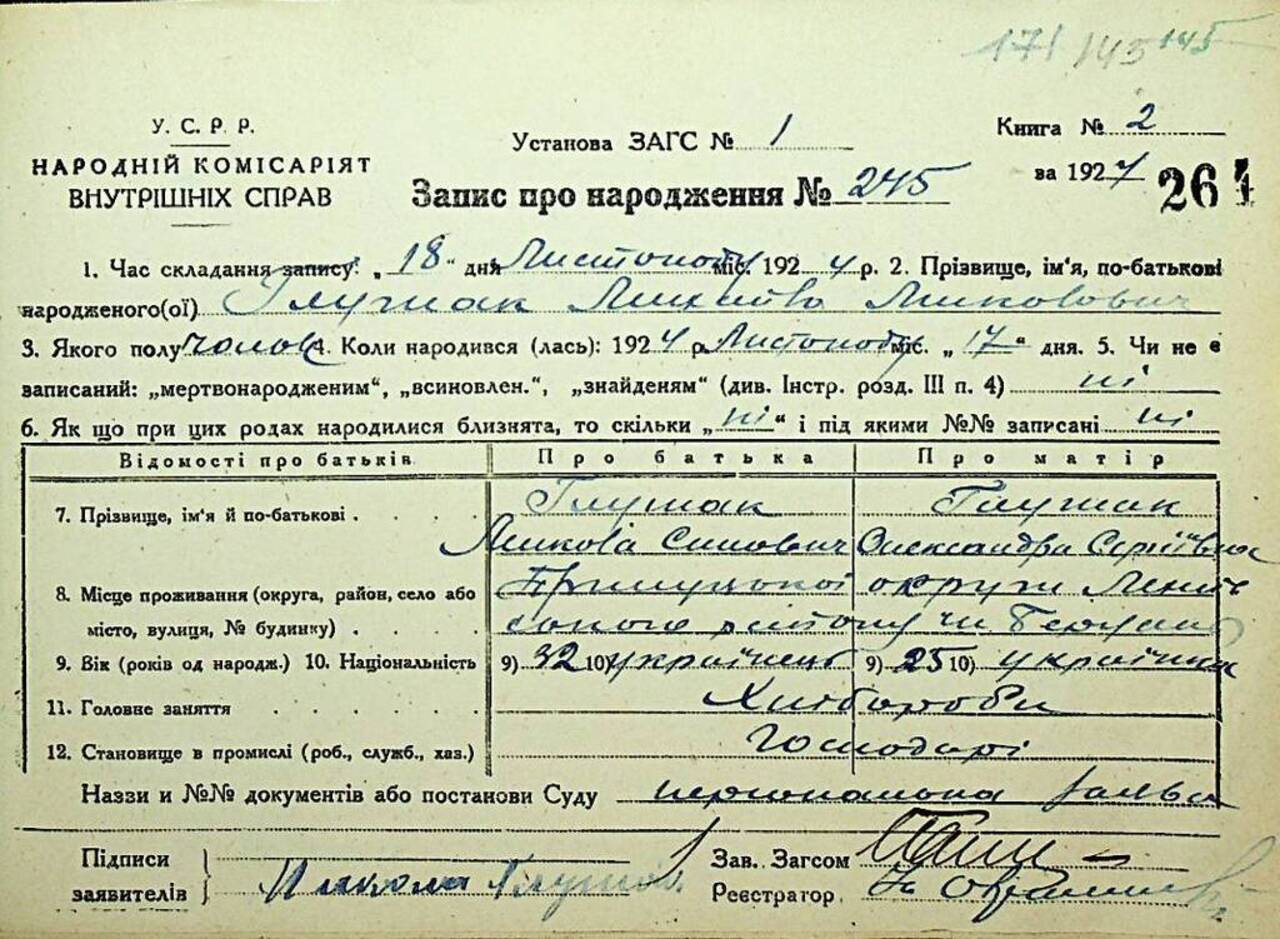 171 145 145
У. С. Р. Р.
НАРОДНІЙ КОМІСАРІЯТ
ВНУТРІШНІХ СПРАВ
Установа ЗАГС № 1
Книга № 2
за 1924
264
Запис про народження № 245
1. Час складання запису: „18" дня Листопаду міс. 1924 р. 2. Прізвище, ім'я, по-батькові
народженого(ої) Глушак Михайло Миколович
3. Якого полу чолов 4. Коли народився (лась): 1924 р Листопаду міс. „17" дня. 5. Чи не є
записаний: „мертвонародженим", „всиновлен.", „знайденям" (див. Інстр. розд. III п. 4) ні
6. Як що при цих родах народилися близнята, то скільки „ні" і під якими №№ записані ні
Відомості про батьків Про батька Про матір
7. Прізвище, ім'я й по-батькові . . . . Глушак Глушак
Микола Олександра Сергіївна
8. Місце проживання (округа, район, село або Прилуцької округи
місто, вулиця, № будинку) . . . . району
9. Вік (років од народж.) 10. Національність 9) 32 10) українець 9) 25 10) українка
11. Головне заняття . . . . . . Хлібороби
12. Становище в промислі (роб., служб., хаз.) Господарі
Наззи и №№ документів або постанови Суду
Підписи
заявителів
Микола Глушак
Зав. Загсом
Реєстратор